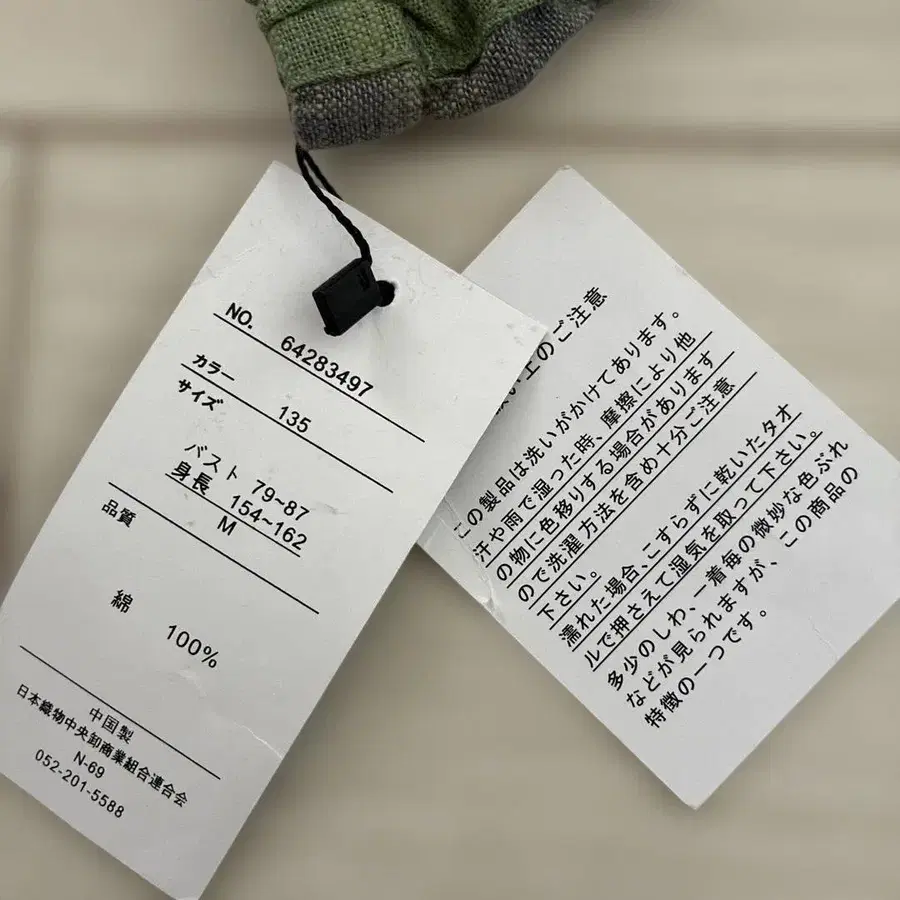 NO. 64283497
カラー 135
サイズ
バスト 79~87
身長 154~162
M
品質
綿 100%
中国製
日本織物中央卸商業組合連合会
N-69
052-201-5588
い上のご注意
この製品は洗いがかけてあります。
汗や雨で湿った時、摩擦により他
の物に色移りする場合があります
ので洗濯方法を含め十分ご注意
下さい。
濡れた場合、こすらずに乾いたタオ
ルで押さえて湿気を取って下さい。
多少のしわ、一着毎の微妙な色ぶれ
などが見られますが、この商品の
特徴の一つです。